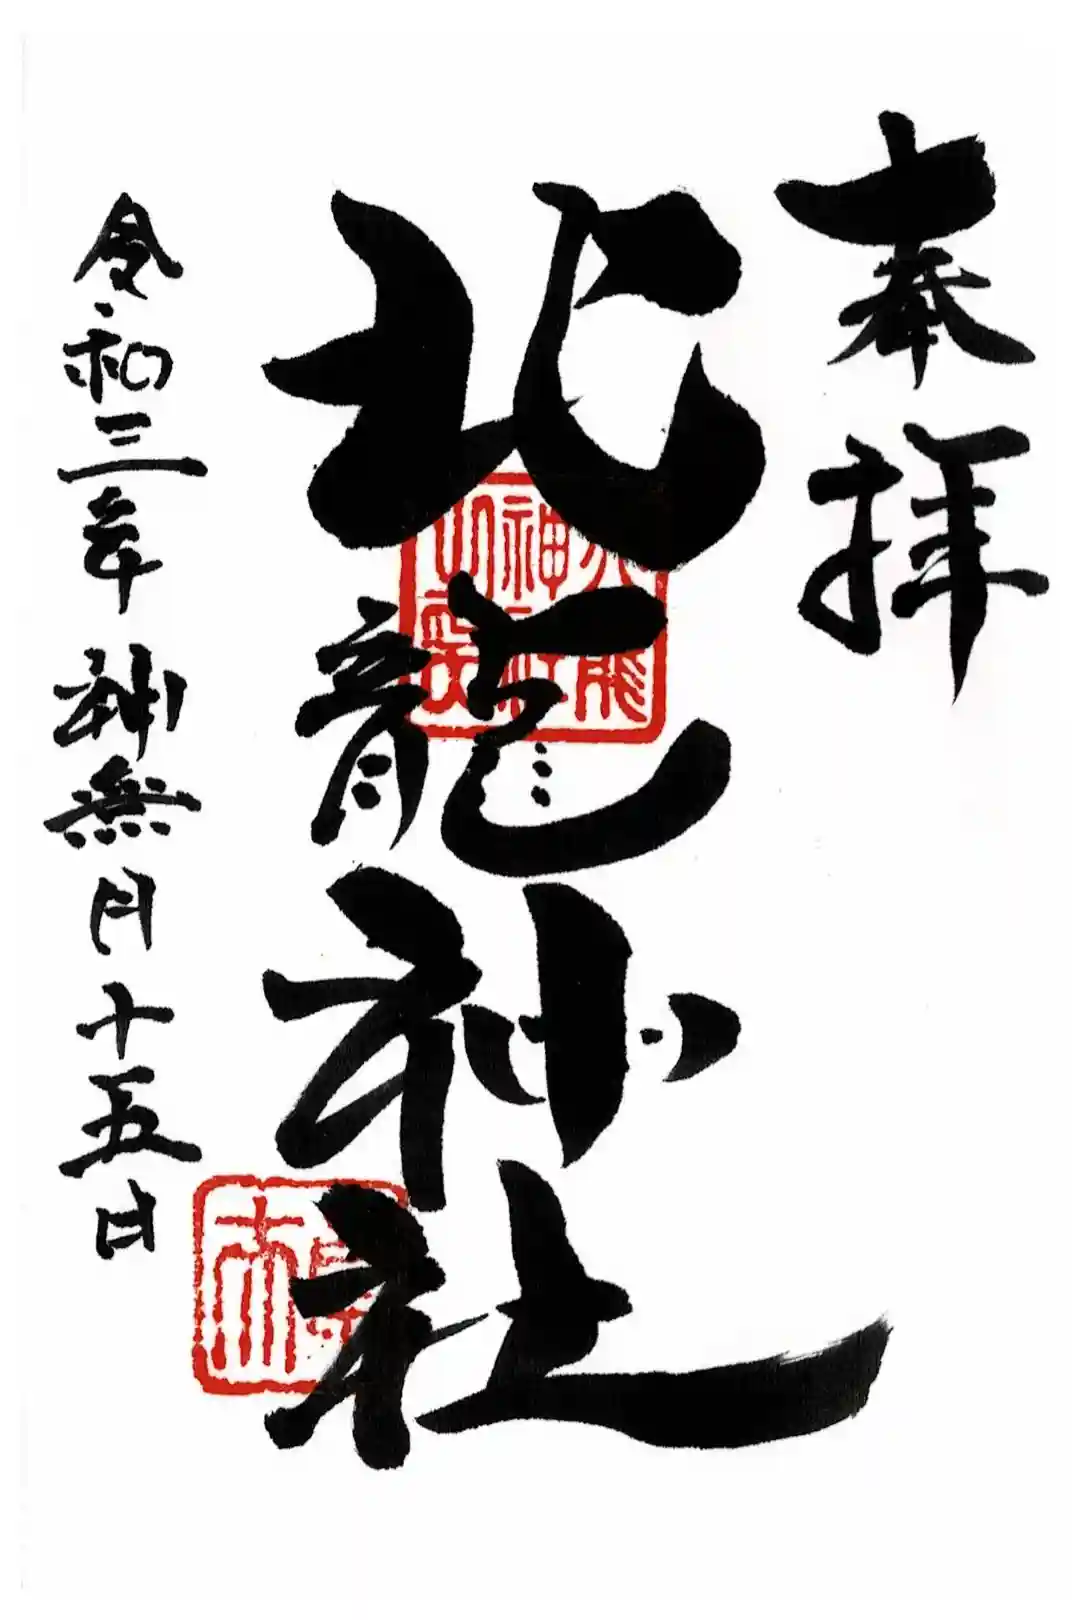 奉拝
北龍神社
令和三年 神無月十五日